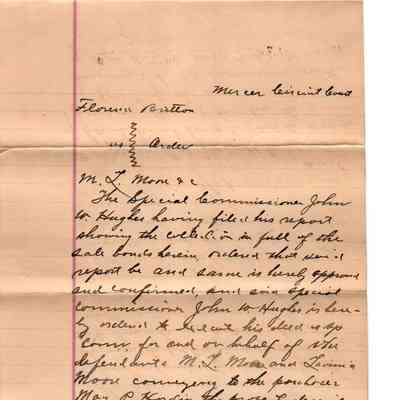 Mercer Circuit Court
Florence Britton
vs } Order
M. L. Moore &c
The Special Commissioner John
W. Hughes having filed his report
showing the collection in full of the
sale bonds herein, ordered that said
report be and same is hereby approved
and confirmed, and said special
commissioner John W Hughes is here-
by ordered to execute his deed as sp
Comr. for and on behalf of the
defendants M. L. Moore and
Moore conveying to the purchaser
May P.